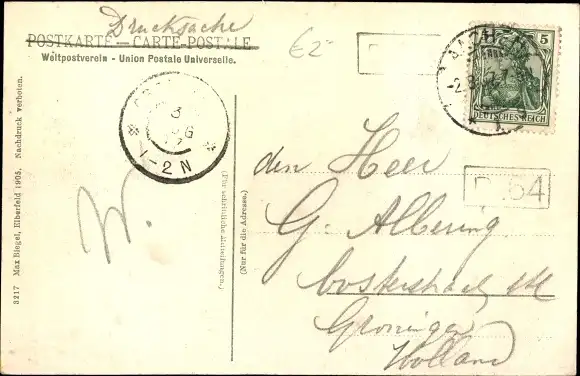 Drucksache
POSTKARTE — CARTE-POSTALE
Weltpostverein - Union Postale Universelle.
€2-
5
DEUTSCHES REICH
3
1-2 N
3217 Max Biegel, Elberfeld 1905. Nachdruck verboten.
(Für schriftliche Mitteilungen.)
(Nur für die Adresse.)
W.
den Heer
G. Albering
Groningen
Holland